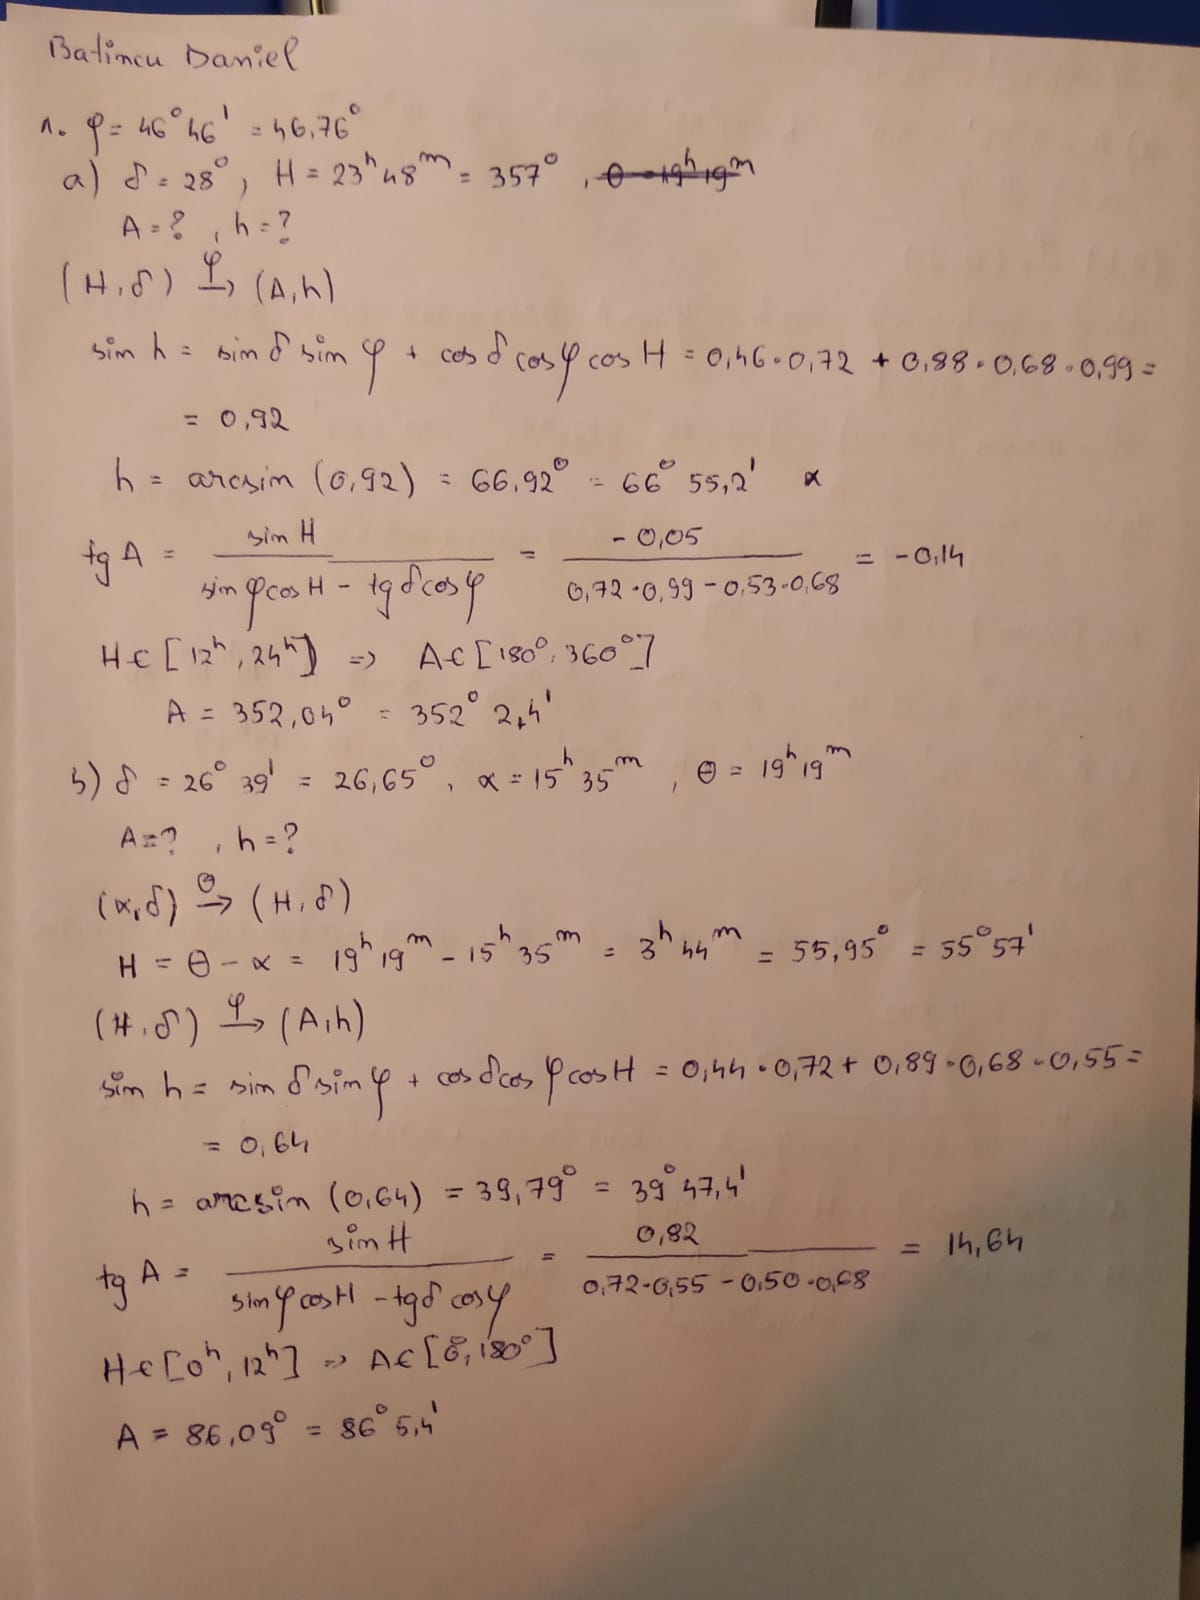 Batincu Daniel
1. φ = 46° 46' = 46,76°
a) δ = 28°, H = 23ʰ 48ᵐ = 357°, θ = 19ʰ 19ᵐ
A = ? , h = ?
(H, δ) φ→ (A, h)
sin h = sin δ sin φ + cos δ cos φ cos H = 0,46 · 0,72 + 0,88 · 0,68 · 0,99 =
= 0,92
h = arcsin (0,92) = 66,92° = 66° 55,2' α
tg A = sin H / (sin φ cos H - tg δ cos φ) = -0,05 / (0,72 · 0,99 - 0,53 · 0,68) = -0,14
H ∈ [12ʰ, 24ʰ] => A ∈ [180°, 360°]
A = 352,04° = 352° 2,4'
b) δ = 26° 39' = 26,65°, α = 15ʰ 35ᵐ, θ = 19ʰ 19ᵐ
A = ? , h = ?
(α, δ) θ→ (H, δ)
H = θ - α = 19ʰ 19ᵐ - 15ʰ 35ᵐ = 3ʰ 44ᵐ = 55,95° = 55° 57'
(H, δ) φ→ (A, h)
sin h = sin δ sin φ + cos δ cos φ cos H = 0,44 · 0,72 + 0,89 · 0,68 · 0,55 =
= 0,64
h = arcsin (0,64) = 39,79° = 39° 47,4'
tg A = sin H / (sin φ cos H - tg δ cos φ) = 0,82 / (0,72 · 0,55 - 0,50 · 0,68) = 14,64
H ∈ [0ʰ, 12ʰ] => A ∈ [0°, 180°]
A = 86,09° = 86° 5,4'